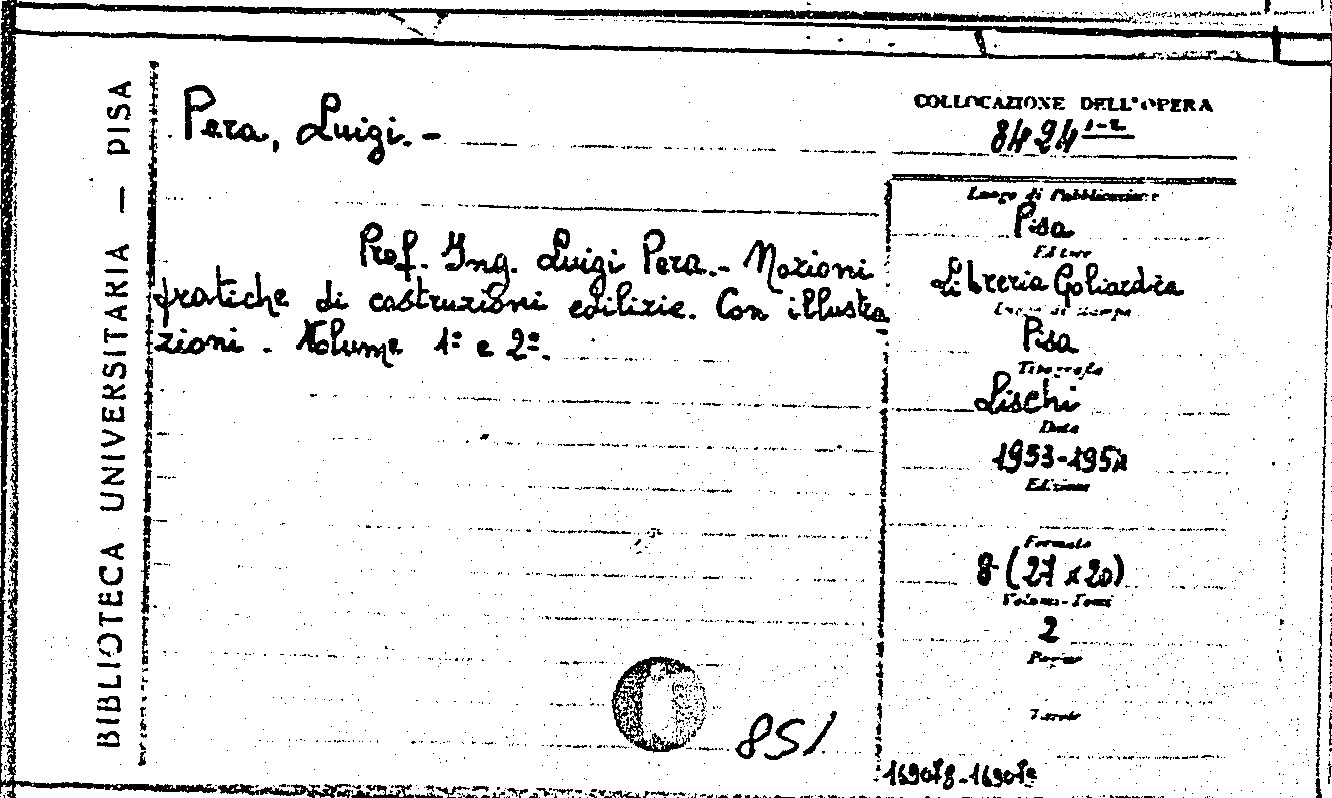 BIBLIOTECA UNIVERSITARIA — PISA
Pera, Luigi. -
Prof. Ing. Luigi Pera. - Nozioni
pratiche di costruzioni edilizie. Con illustra
zioni. Volume 1º e 2º.
851
COLLOCAZIONE DELL'OPERA
8424 1-2
Luogo di Pubblicazione
Pisa
Editore
Libreria Goliardica
Luogo di stampa
Pisa
Tipografia
Lischi
Data
1953-1954
Edizione
Formato
8 (27 x 20)
Volumi-Tomi
2
Pagine
Tavole